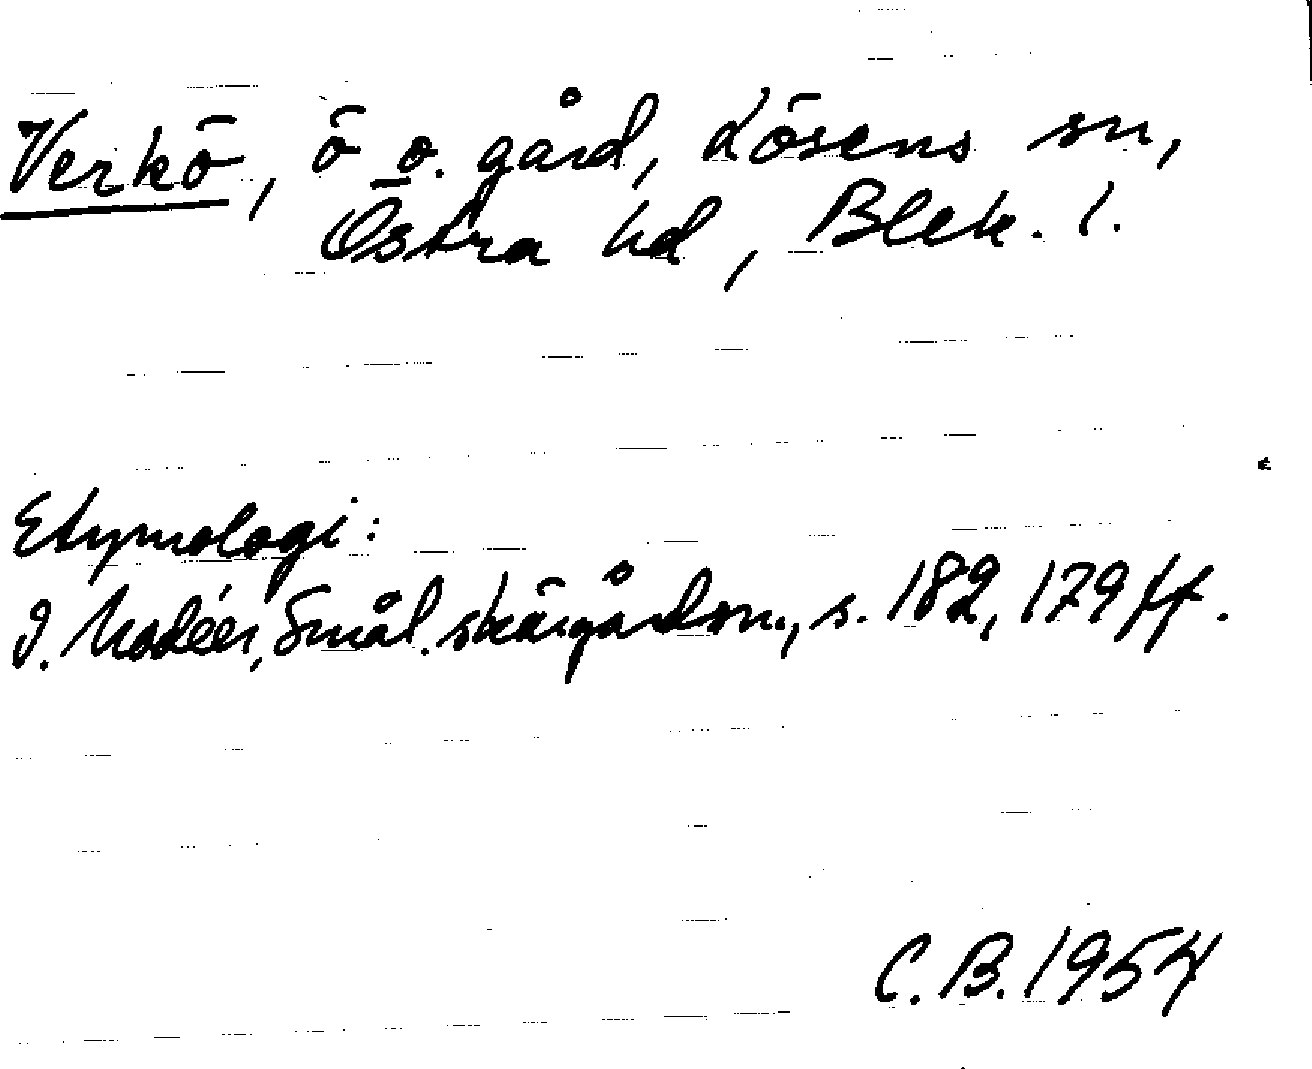 Verkö, ö o. gård, Lösens sn,
Östra hd, Blek. l.
Etymologi:
I. Modéer, Smål. skärgårdsn., s. 182, 179 ff.
C. B. 1954